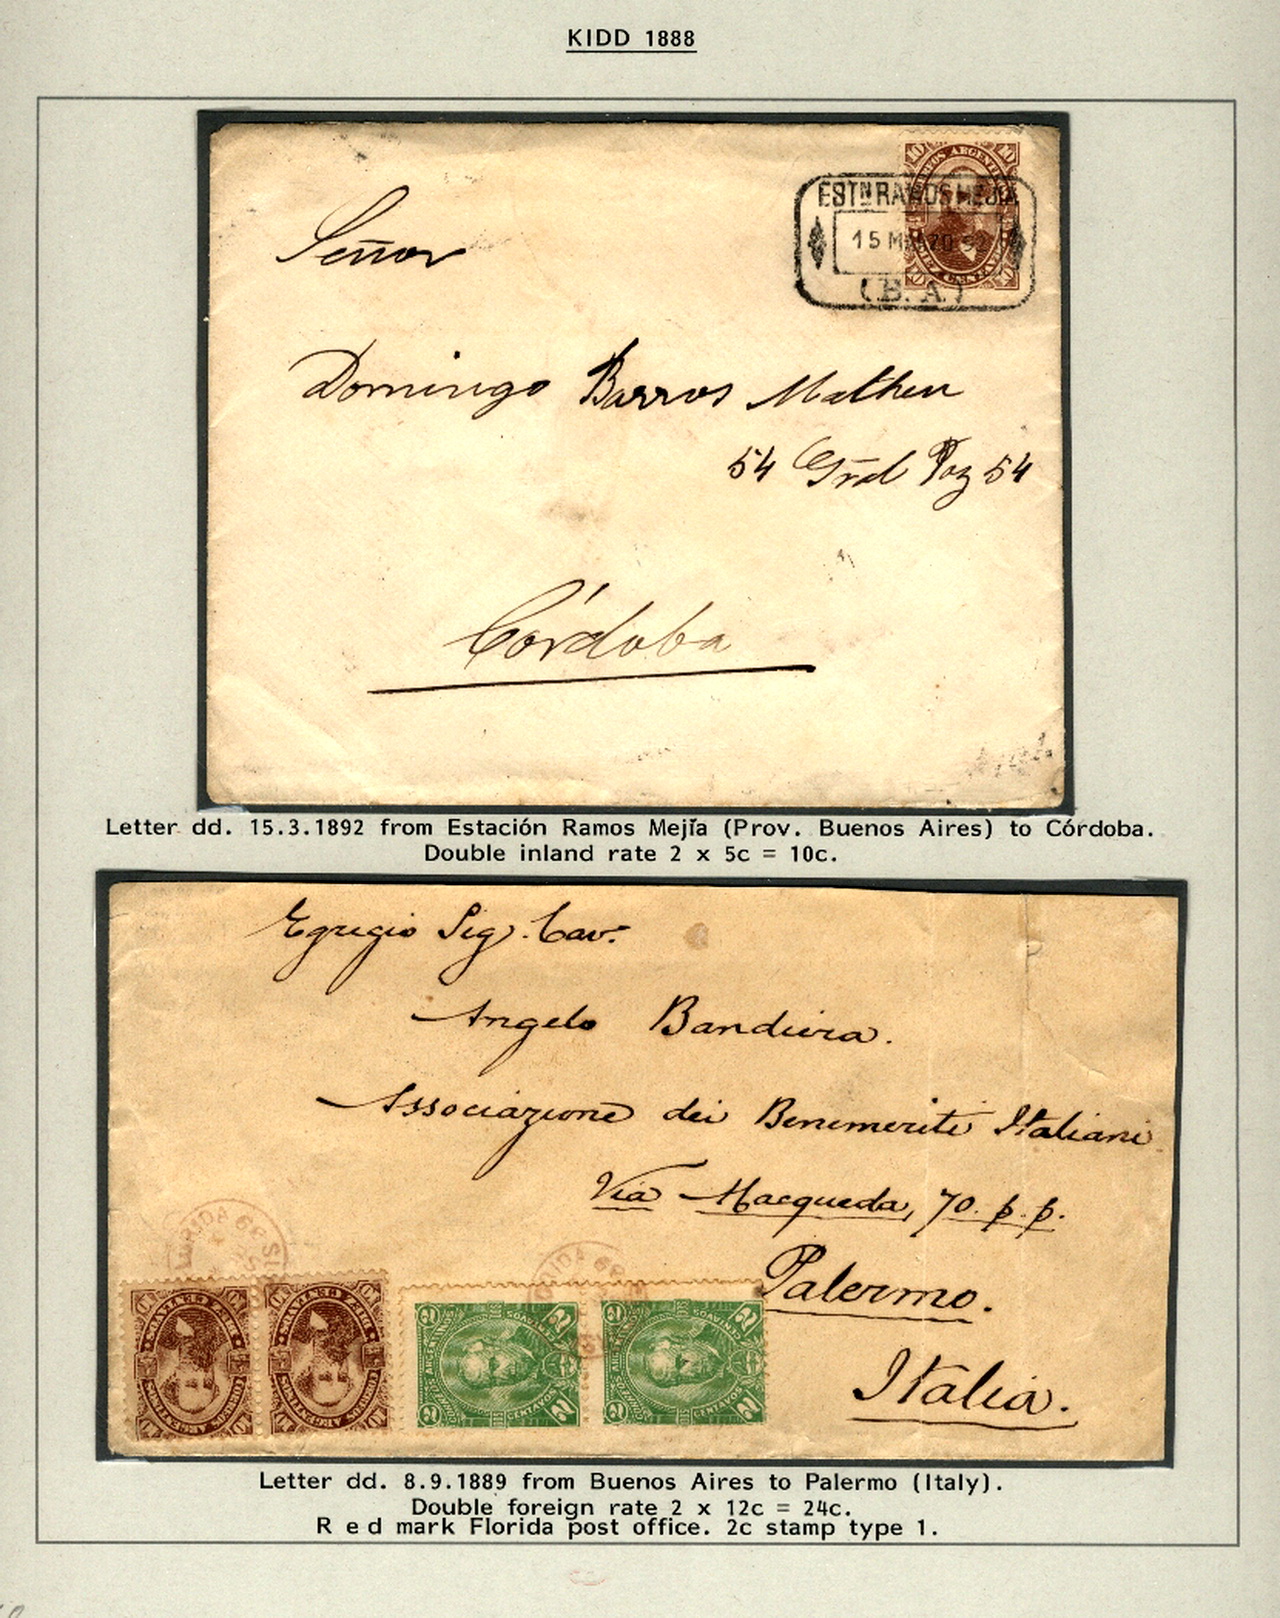 KIDD 1888
ESTN RAMOS MEJIA
15 MARZO 92
(B.A.)
Señor
Domingo Barros Matheu
54 Gral Paz 54
Córdoba
Letter dd. 15.3.1892 from Estación Ramos Mejía (Prov. Buenos Aires) to Córdoba.
Double inland rate 2 x 5c = 10c.
Egregio Sig. Cav.
Angelo Bandiera.
Associazione dei Benemeriti Italiani
Via Macqueda, 70. p. p.
Palermo.
Italia.
FLORIDA
DIEZ CENTAVOS
CORREOS ARGENTINOS
10
DIEZ CENTAVOS
CORREOS ARGENTINOS
10
2
CENTAVOS
2
CENTAVOS
Letter dd. 8.9.1889 from Buenos Aires to Palermo (Italy).
Double foreign rate 2 x 12c = 24c.
R e d mark Florida post office. 2c stamp type 1.